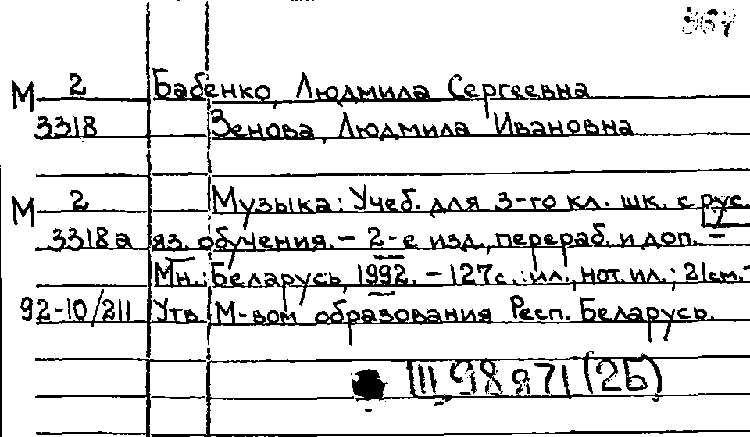 М 2 Бабенко, Людмила Сергеевна
3318 Зенова, Людмила Ивановна
М 2 Музыка: Учеб. для 3-го кл. шк. с рус.
3318а яз. обучения. – 2-е изд., перераб. и доп. –
Мн.: Беларусь, 1992. – 127с.: ил., нот. ил.; 21см.-
92-10/211 Утв. М-вом образования Респ. Беларусь.
Ш98я71(2Б)